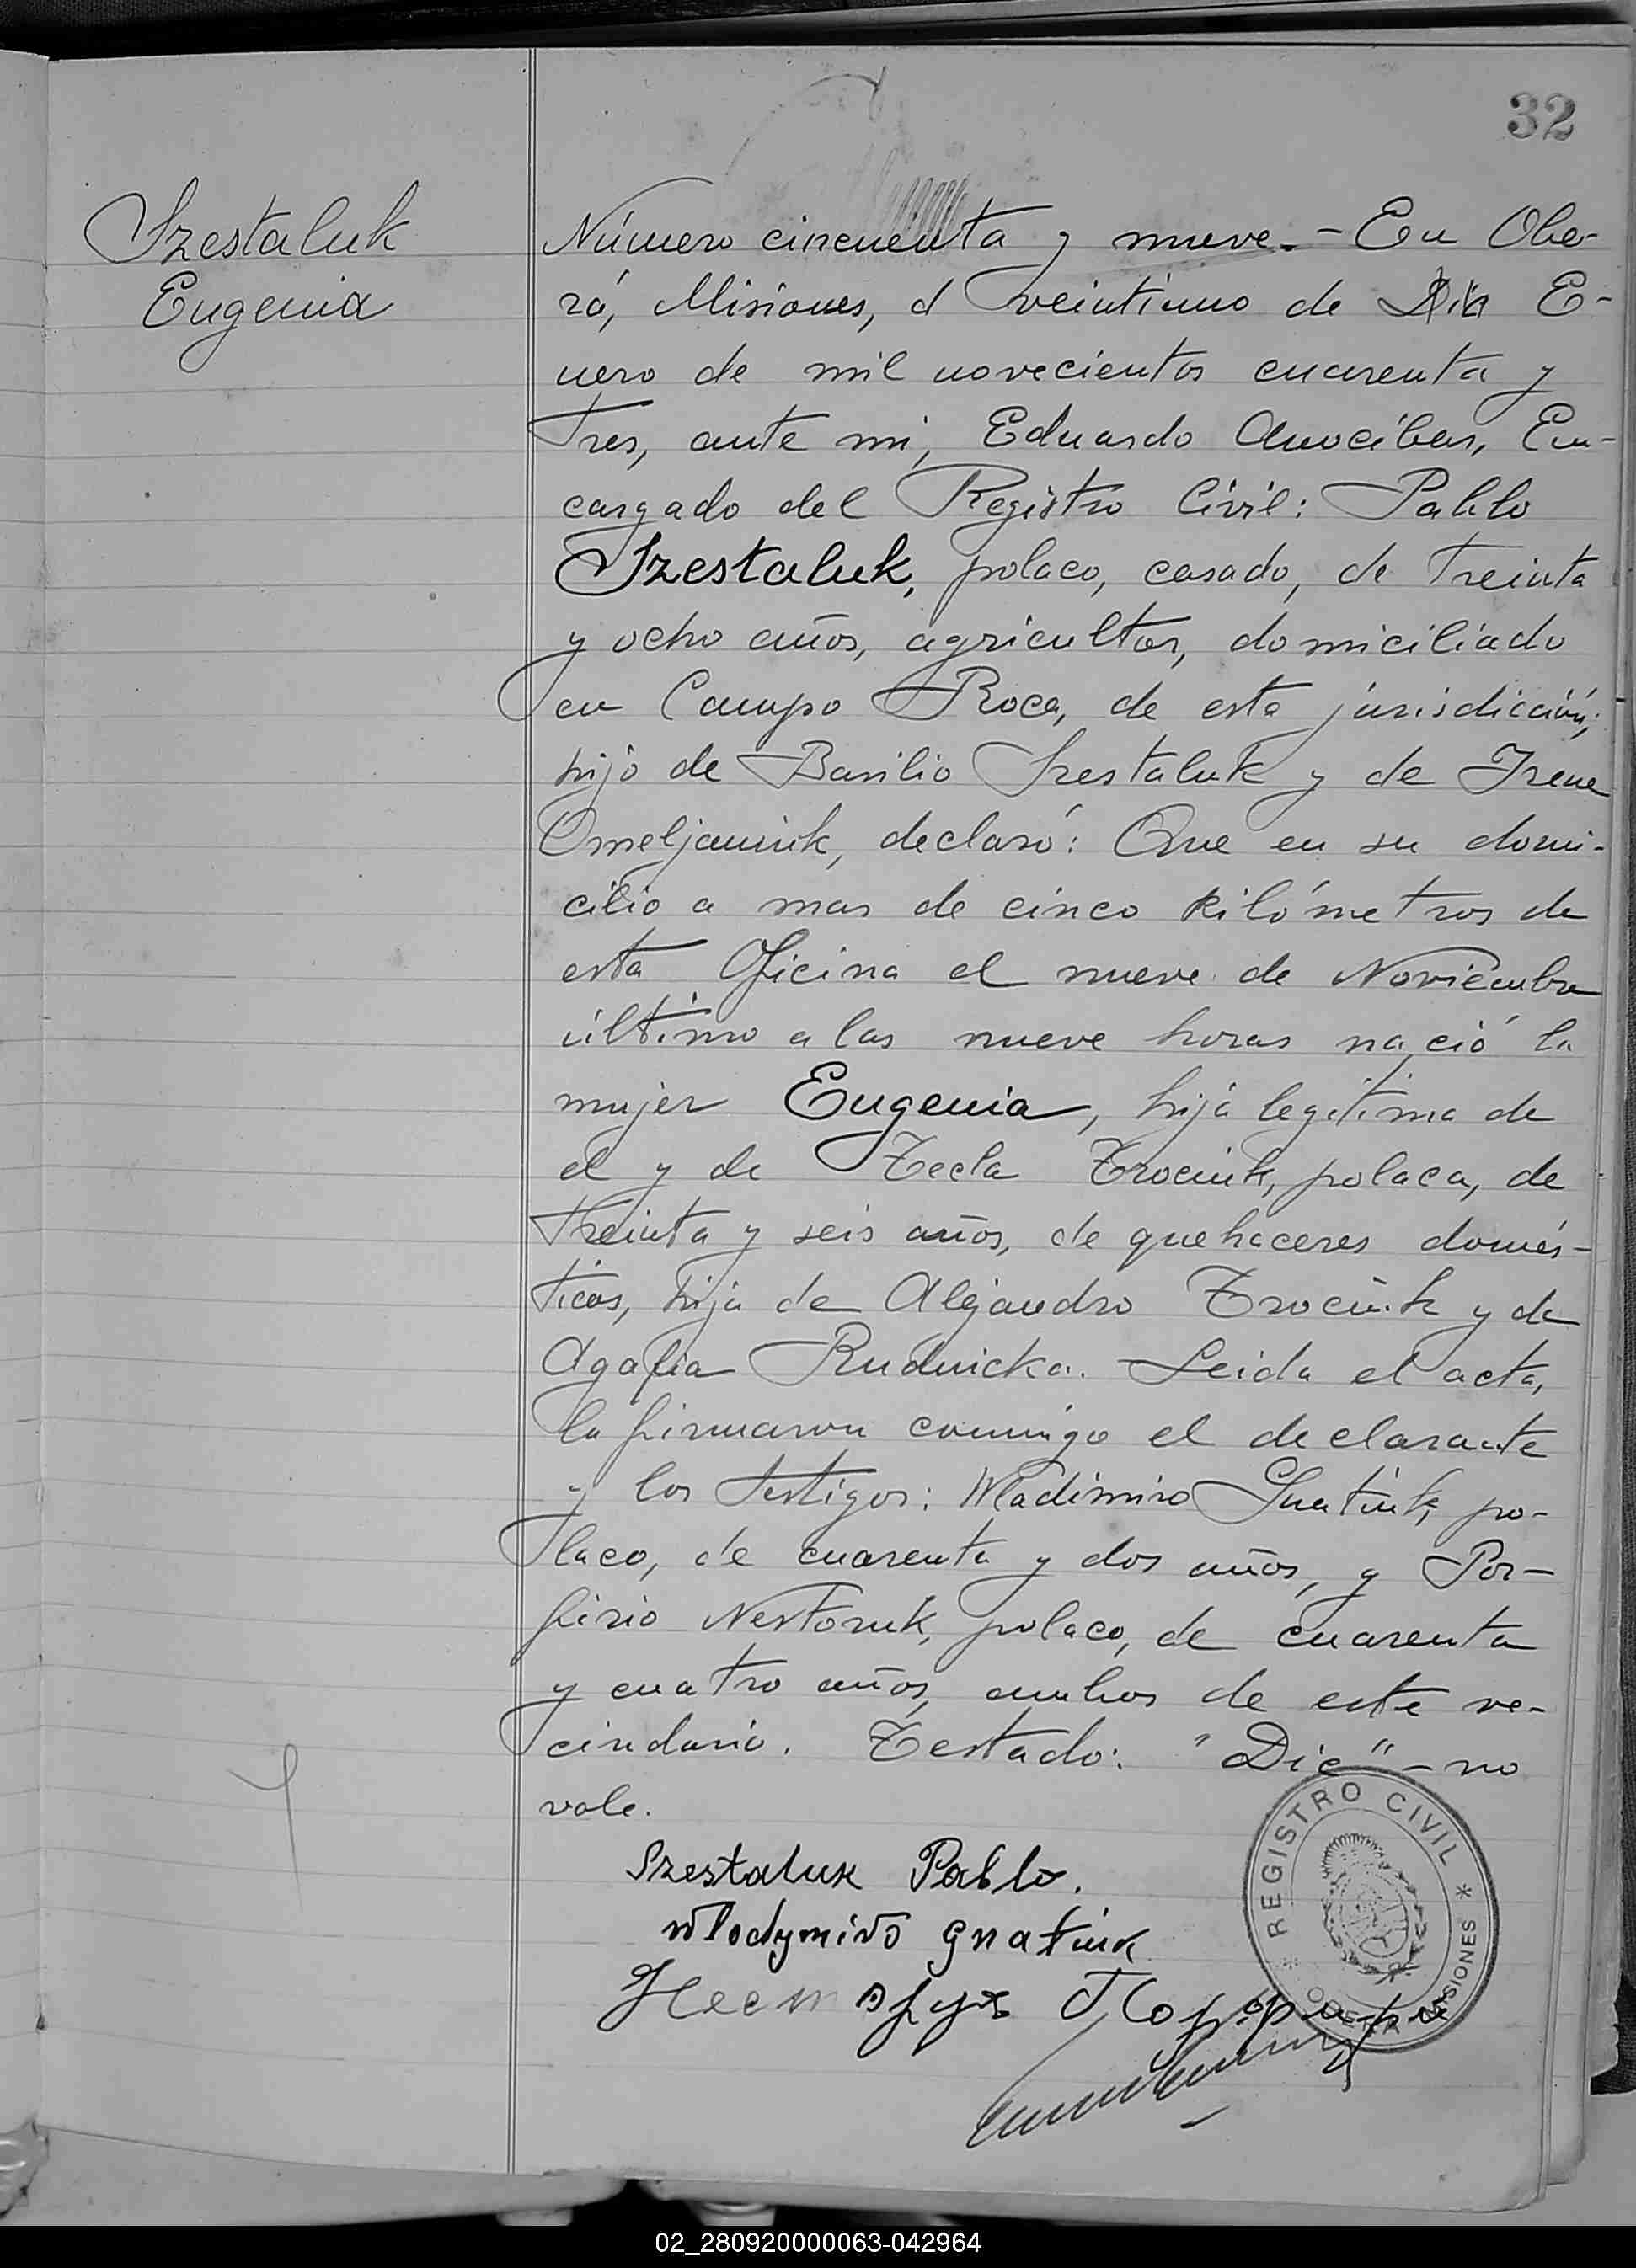 32
Szestaluk
Eugenia
Número cincuenta y nueve.- En Obe-
rá, Misiones, a veintiuno de Dic E-
nero de mil novecientos cuarenta y
tres, ante mi, Eduardo Anocíbar, En-
cargado del Registro Civil: Pablo
Szestaluk, polaco, casado, de treinta
y ocho años, agricultor, domiciliado
en Campo Roca, de esta jurisdicción;
hijo de Basilio Szestaluk y de Irene
Omeljaniuk, declaró: Que en su domi-
cilio a mas de cinco kilómetros de
esta Oficina el nueve de Noviembre
último a las nueve horas nació la
mujer Eugenia, hija legítima de
el y de Tecla Trociuk, polaca, de
treinta y seis años, de quehaceres domés-
ticos, hija de Alejandro Trociuk y de
Agafia Rudnicka. Leida el acta,
la firmaron conmigo el declarante
y los testigos: Wladimiro Gnatiuk, po-
laco, de cuarenta y dos años, y Por-
firio Nestoruk, polaco, de cuarenta
y cuatro años, ambos de este ve-
cindario. Testado: "Dic" - no
vale.
Szestaluk Pablo.
Wlodymiro Gnatiuk
Несторук Порфири
REGISTRO CIVIL
OBERA MISIONES
02_280920000063-042964